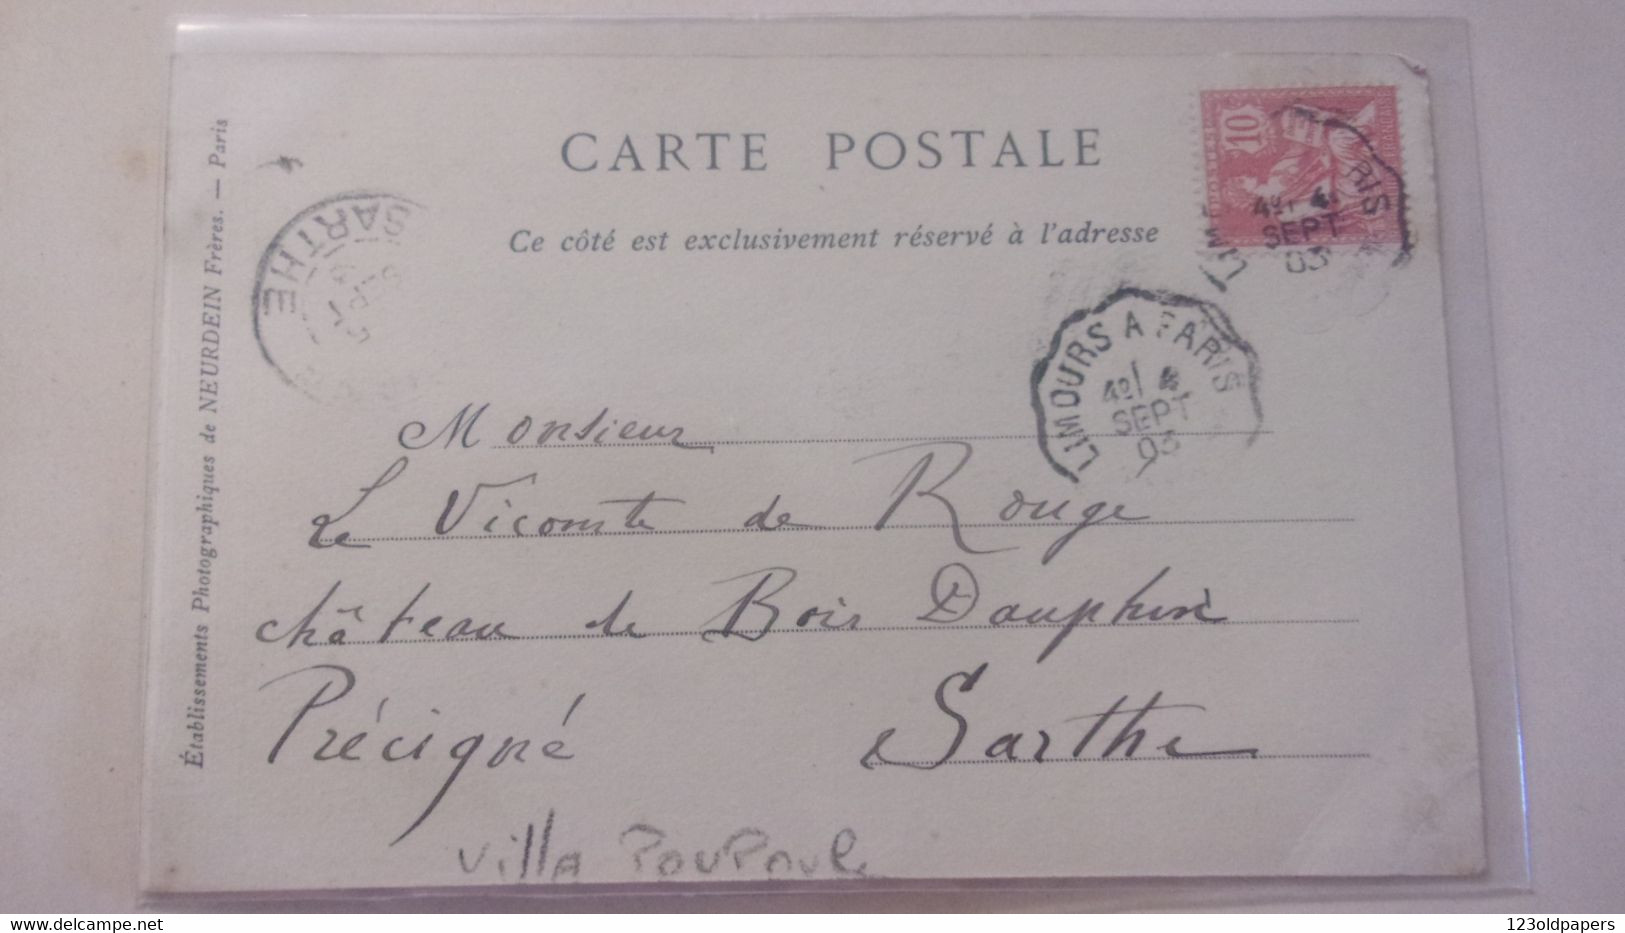 CARTE POSTALE
Ce côté est exclusivement réservé à l'adresse
Établissements Photographiques de NEURDEIN Frères. — Paris
10
LIMOURS A PARIS
4
SEPT
03
SARTHE
Monsieur
Le Vicomte de Rougé
château de Bois Dauphin
Précigné Sarthe
Villa PouPoule
www.delcampe.net
123oldpapers